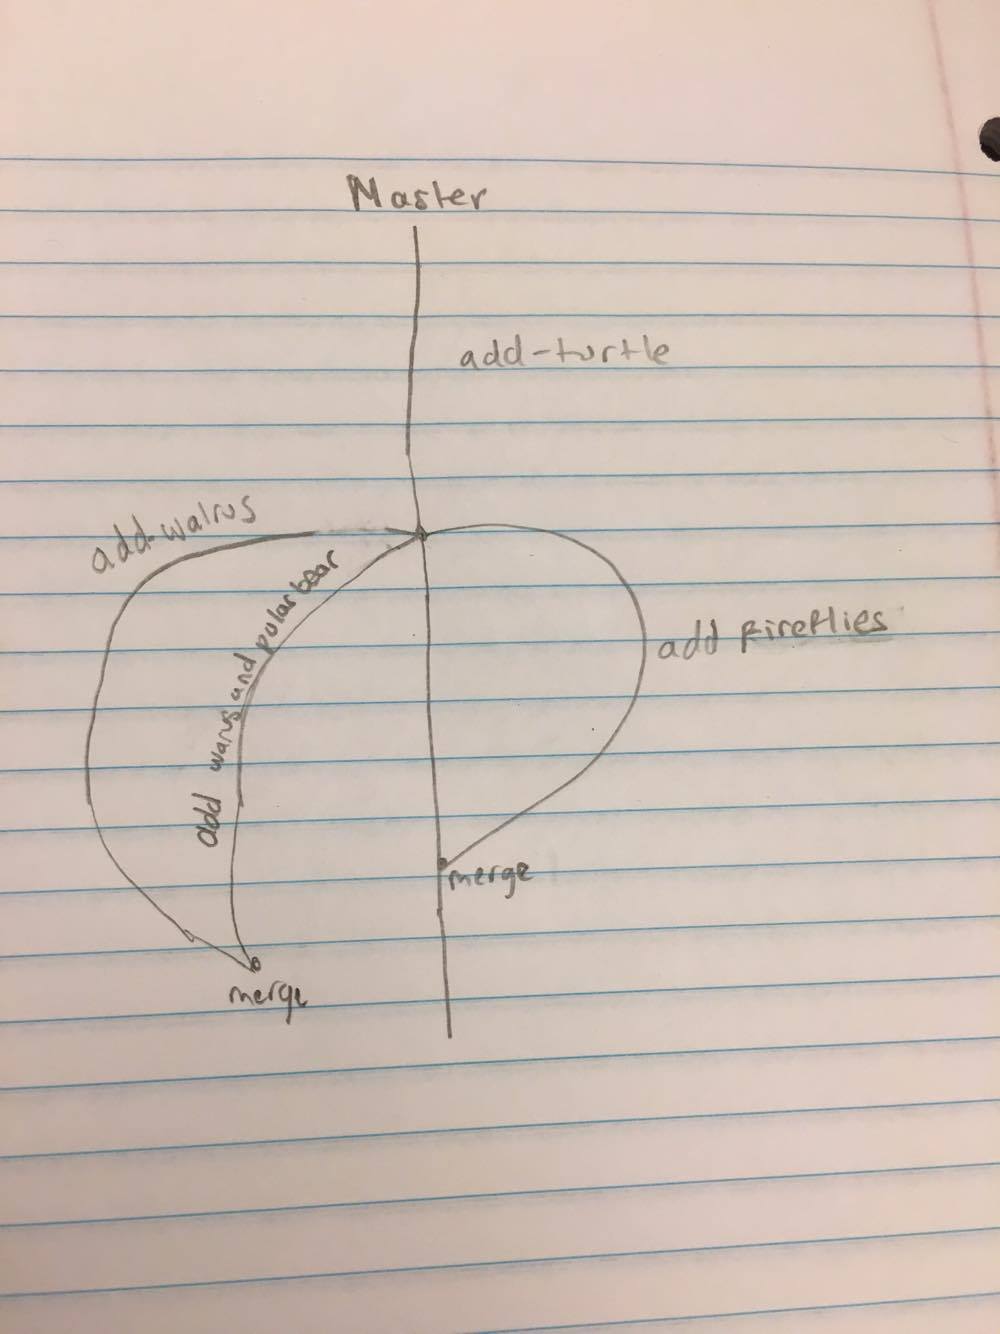 Master
add-turtle
add-walrus
add warus and polar bear
add fireflies
merge
merge